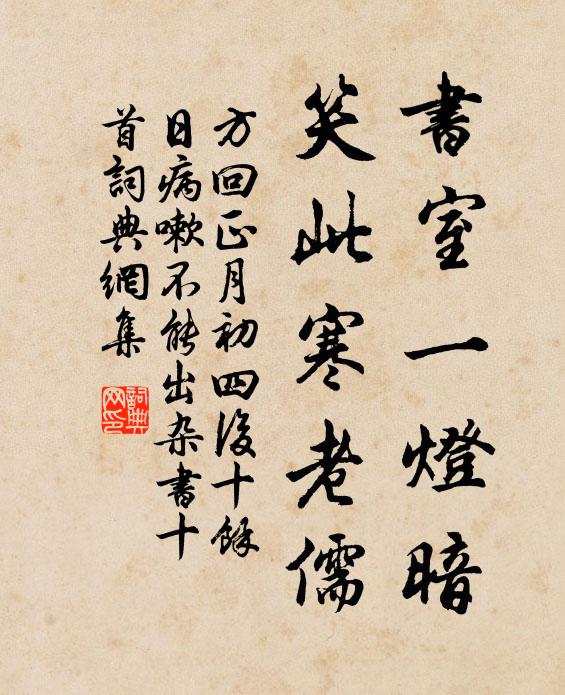 書室一燈暗
笑此寒老儒
方回正月初四後十餘
日病嗽不能出杂書十
首詞典網集
詞典网印